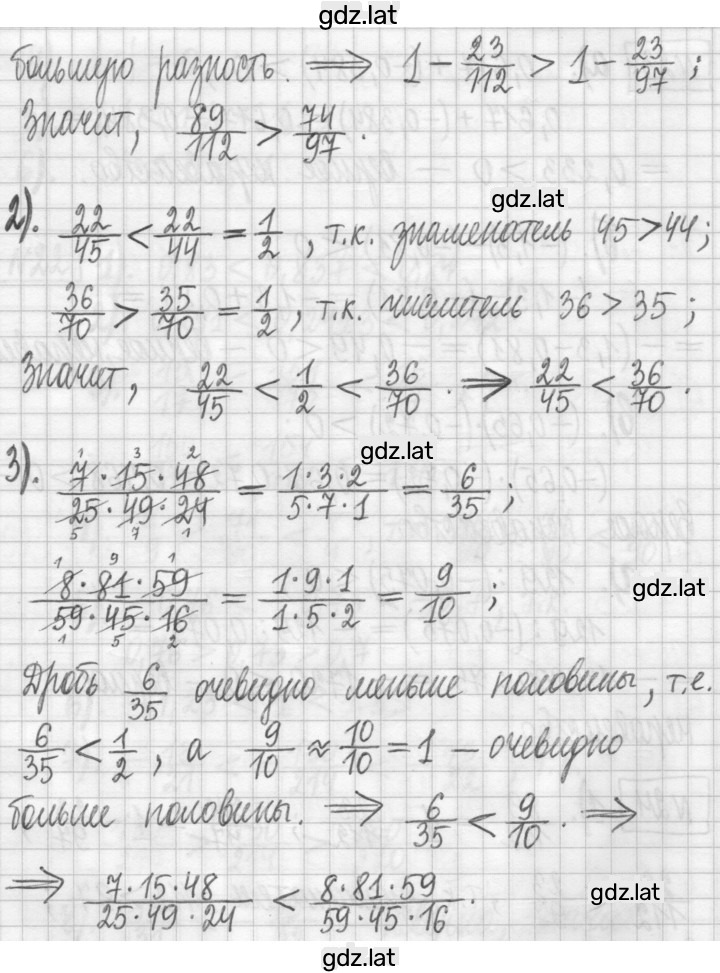 gdz.lat
большую разность. ⟹ 1 - 23/112 > 1 - 23/97 ;
Значит, 89/112 > 74/97 .
gdz.lat
2). 22/45 < 22/44 = 1/2 , т.к. знаменатель 45 > 44 ;
36/70 > 35/70 = 1/2 , т.к. числитель 36 > 35 ;
Значит, 22/45 < 1/2 < 36/70 . ⟹ 22/45 < 36/70 .
gdz.lat
1 3 2
3). 7·15·48 / 25·49·24 = 1·3·2 / 5·7·1 = 6/35 ;
5 7 1
1 9 1
8·81·59 / 59·45·16 = 1·9·1 / 1·5·2 = 9/10 ;
1 5 2
gdz.lat
Дробь 6/35 очевидно меньше половины, т.е.
6/35 < 1/2 , а 9/10 ≈ 10/10 = 1 — очевидно
больше половины. ⟹ 6/35 < 9/10 . ⟹
⟹ 7·15·48 / 25·49·24 < 8·81·59 / 59·45·16 .
gdz.lat
gdz.lat